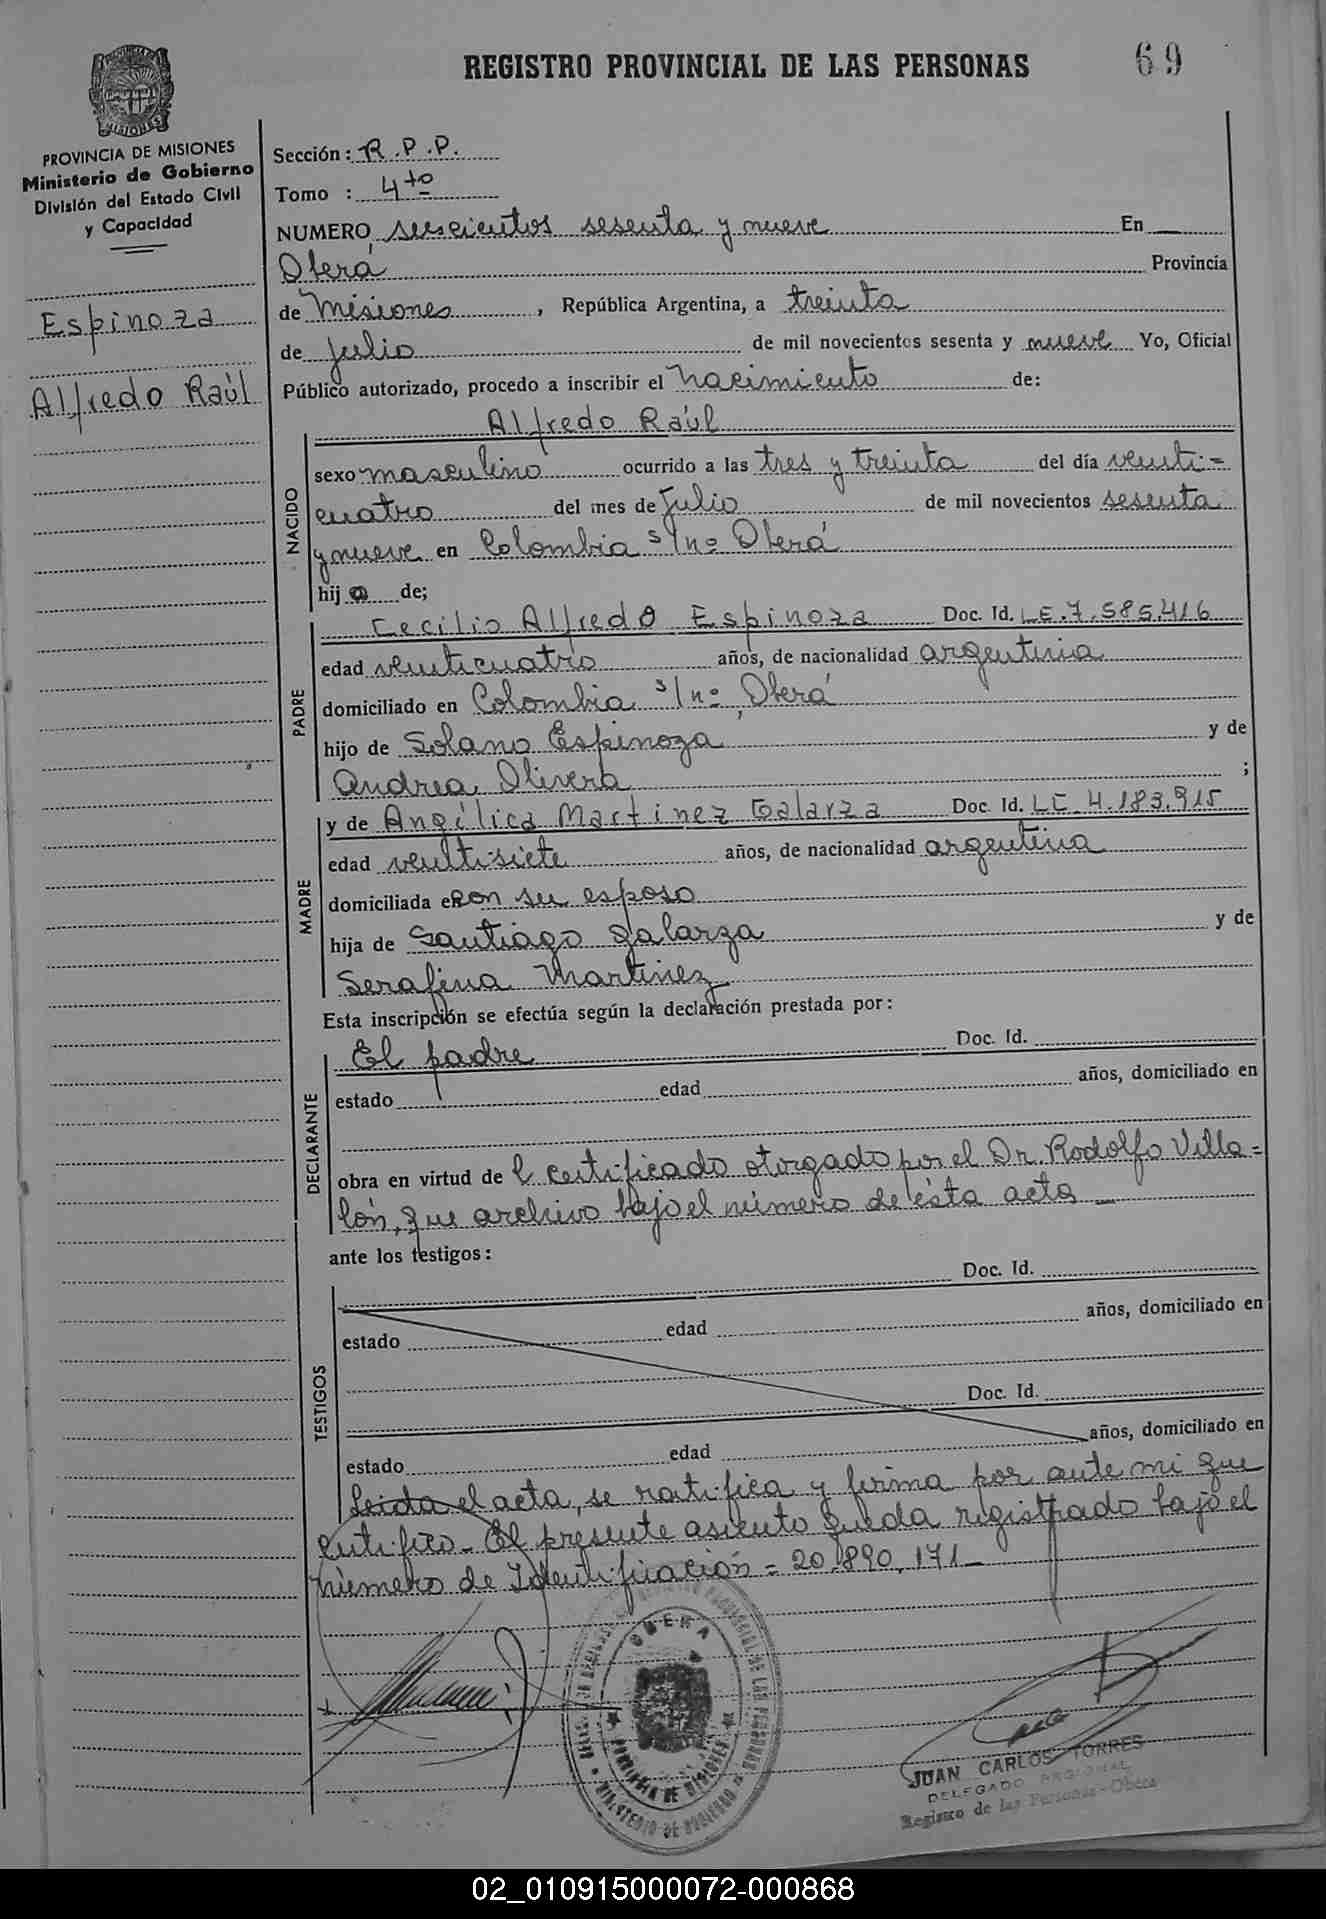 REGISTRO PROVINCIAL DE LAS PERSONAS
69
MISIONES
PROVINCIA DE MISIONES
Ministerio de Gobierno
División del Estado Civil
y Capacidad
Espinoza
Alfredo Raúl
Sección: R.P.P.
Tomo : 4to
NUMERO seiscientos sesenta y nueve En
Oberá Provincia
de Misiones, República Argentina, a treinta
de Julio de mil novecientos sesenta y nueve Yo, Oficial
Público autorizado, procedo a inscribir el nacimiento de:
NACIDO
Alfredo Raúl
sexo masculino ocurrido a las tres y treinta del día veinti=
cuatro del mes de Julio de mil novecientos sesenta
y nueve en Colombia s/nº Oberá
hijo de;
PADRE
Cecilio Alfredo Espinoza Doc. Id. LE.7.585.416
edad veinticuatro años, de nacionalidad argentina
domiciliado en Colombia s/nº, Oberá
hijo de Solano Espinoza y de
Andrea Olivera ;
MADRE
y de Angélica Martinez Galarza Doc. Id. LC 4.183.915
edad veintisiete años, de nacionalidad argentina
domiciliada con su esposo
hija de Santiago Galarza y de
Serafina Martinez
Esta inscripción se efectúa según la declaración prestada por:
DECLARANTE
El padre Doc. Id.
estado edad años, domiciliado en
obra en virtud de l certificado otorgado por el Dr. Rodolfo Villa=
lón, que archivo bajo el número de ésta acta
ante los testigos:
TESTIGOS
Doc. Id.
estado edad años, domiciliado en
Doc. Id.
estado edad años, domiciliado en
Leida el acta, se ratifica y firma por ante mi que
certifico.- El presente asiento queda registrado bajo el
número de Identificación = 20.890.171-
OBERA
PROVINCIA DE MISIONES
MINISTERIO DE GOBIERNO
JUAN CARLOS TORRES
DELEGADO REGIONAL
Registro de las Personas - Oberá
02_010915000072-000868